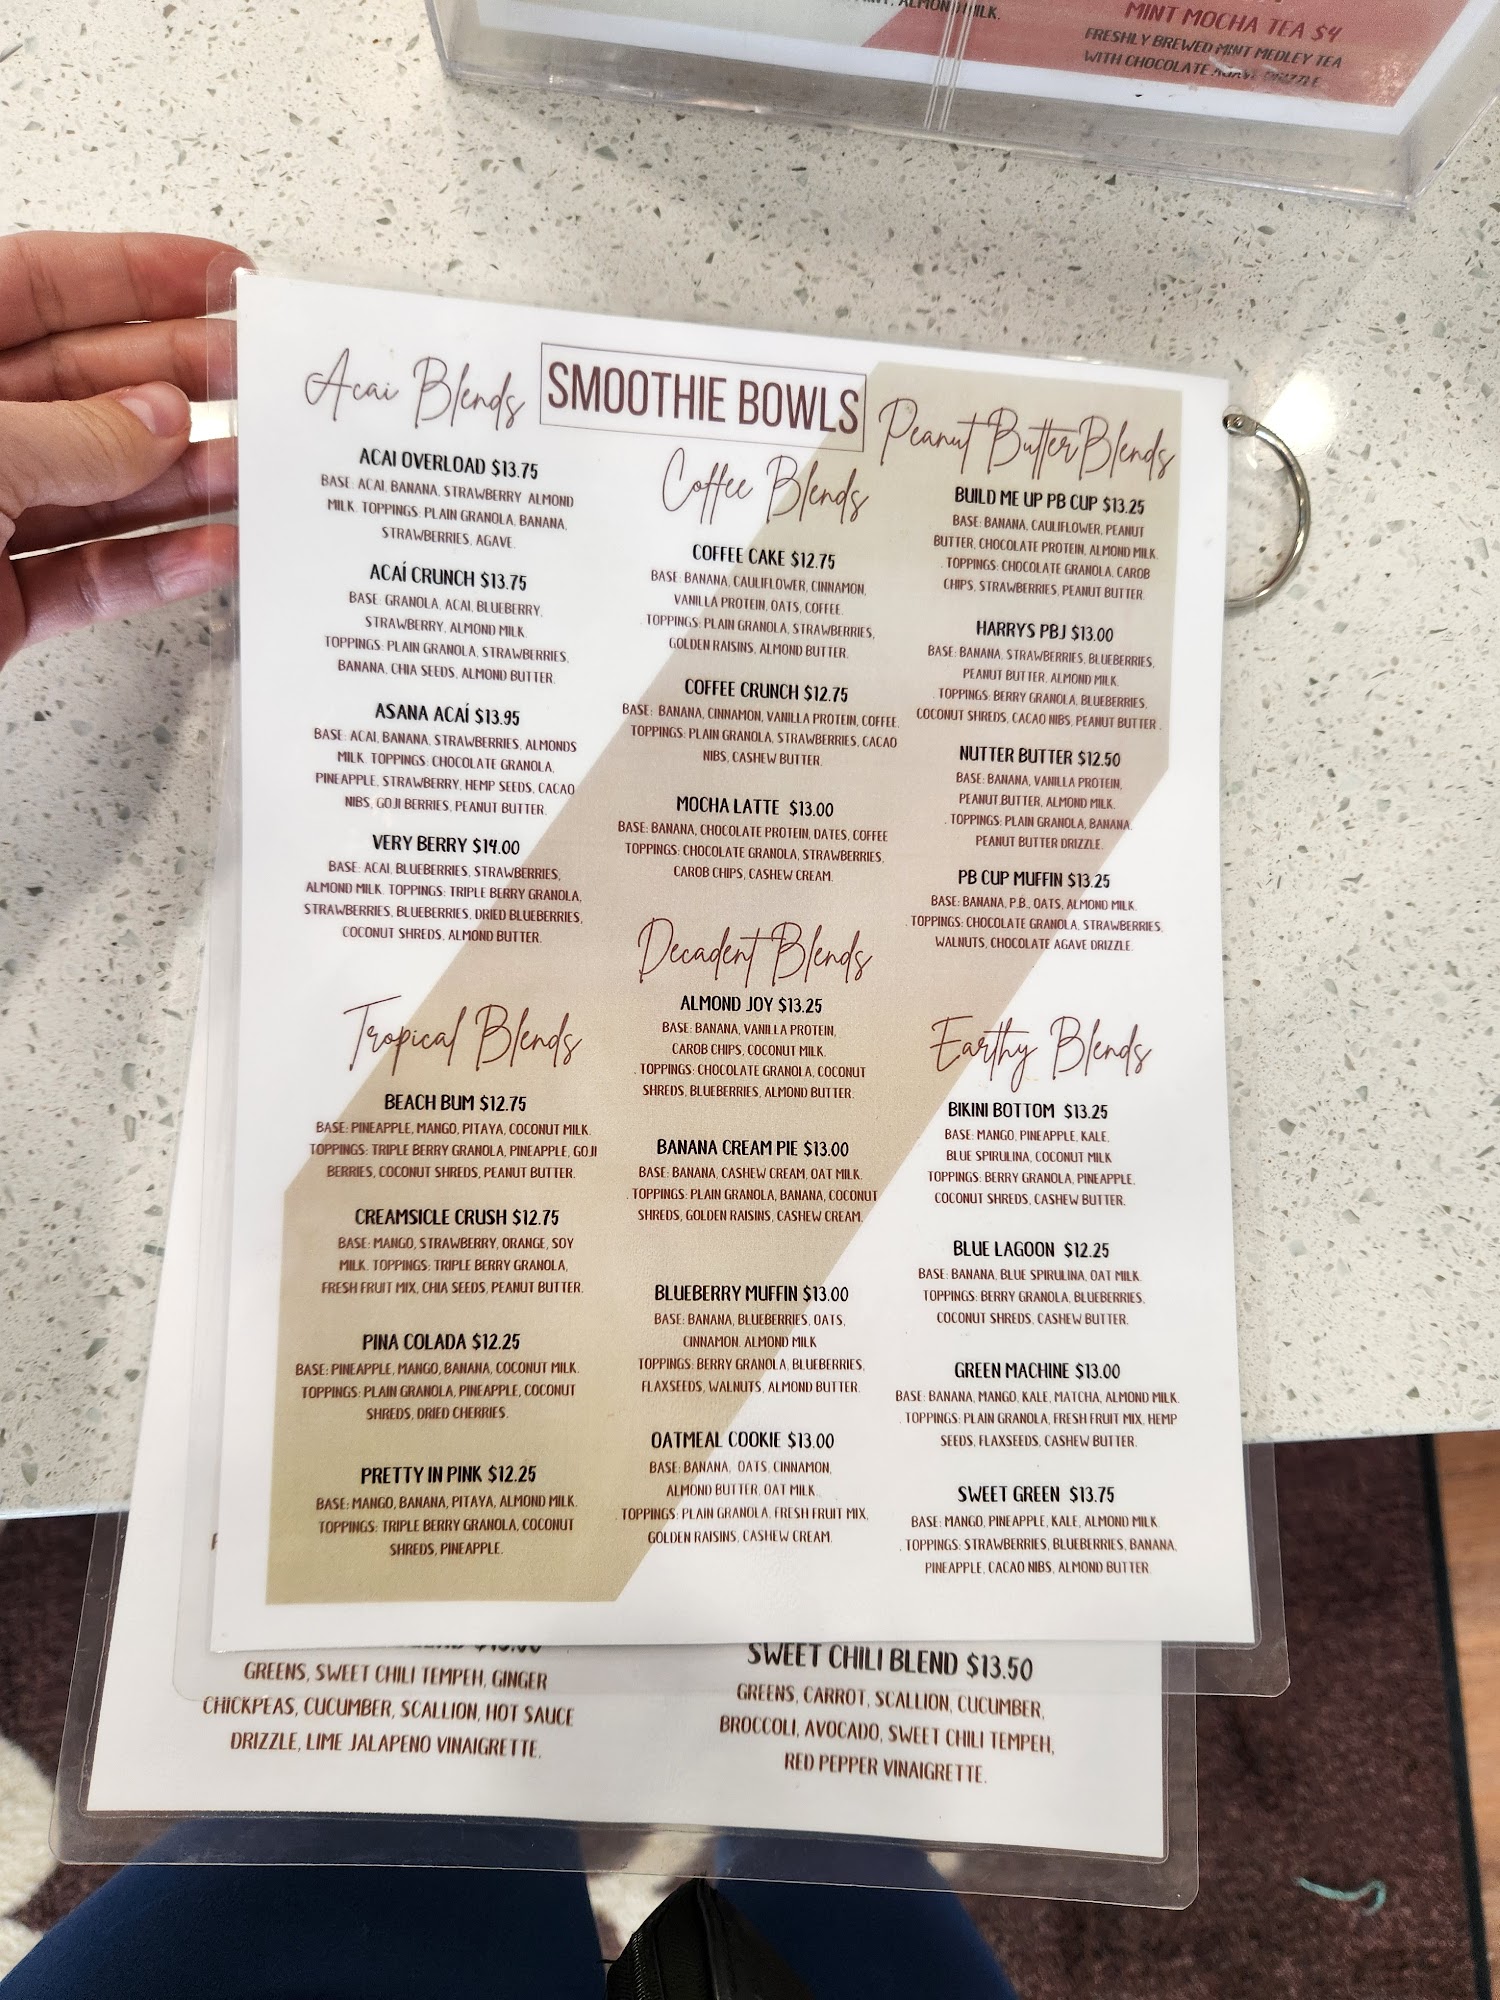 , ALMOND MILK.
MINT MOCHA TEA $4
FRESHLY BREWED MINT MEDLEY TEA
WITH CHOCOLATE AGAVE DRIZZLE
SMOOTHIE BOWLS
Acai Blends
ACAI OVERLOAD $13.75
BASE: ACAI, BANANA, STRAWBERRY ALMOND
MILK. TOPPINGS: PLAIN GRANOLA, BANANA,
STRAWBERRIES, AGAVE.
ACAÍ CRUNCH $13.75
BASE: GRANOLA, ACAI, BLUEBERRY,
STRAWBERRY, ALMOND MILK
TOPPINGS: PLAIN GRANOLA, STRAWBERRIES,
BANANA, CHIA SEEDS, ALMOND BUTTER.
ASANA ACAÍ $13.95
BASE: ACAI, BANANA, STRAWBERRIES, ALMONDS
MILK. TOPPINGS: CHOCOLATE GRANOLA,
PINEAPPLE, STRAWBERRY, HEMP SEEDS, CACAO
NIBS, GOJI BERRIES, PEANUT BUTTER.
VERY BERRY $14.00
BASE: ACAI, BLUEBERRIES, STRAWBERRIES,
ALMOND MILK. TOPPINGS: TRIPLE BERRY GRANOLA,
STRAWBERRIES, BLUEBERRIES, DRIED BLUEBERRIES,
COCONUT SHREDS, ALMOND BUTTER.
Tropical Blends
BEACH BUM $12.75
BASE: PINEAPPLE, MANGO, PITAYA, COCONUT MILK.
TOPPINGS: TRIPLE BERRY GRANOLA, PINEAPPLE, GOJI
BERRIES, COCONUT SHREDS, PEANUT BUTTER.
CREAMSICLE CRUSH $12.75
BASE: MANGO, STRAWBERRY, ORANGE, SOY
MILK. TOPPINGS: TRIPLE BERRY GRANOLA,
FRESH FRUIT MIX, CHIA SEEDS, PEANUT BUTTER.
PINA COLADA $12.25
BASE: PINEAPPLE, MANGO, BANANA, COCONUT MILK.
TOPPINGS: PLAIN GRANOLA, PINEAPPLE, COCONUT
SHREDS, DRIED CHERRIES.
PRETTY IN PINK $12.25
BASE: MANGO, BANANA, PITAYA, ALMOND MILK.
TOPPINGS: TRIPLE BERRY GRANOLA, COCONUT
SHREDS, PINEAPPLE.
Coffee Blends
COFFEE CAKE $12.75
BASE: BANANA, CAULIFLOWER, CINNAMON,
VANILLA PROTEIN, OATS, COFFEE.
. TOPPINGS: PLAIN GRANOLA, STRAWBERRIES,
GOLDEN RAISINS, ALMOND BUTTER.
COFFEE CRUNCH $12.75
BASE: BANANA, CINNAMON, VANILLA PROTEIN, COFFEE.
TOPPINGS: PLAIN GRANOLA, STRAWBERRIES, CACAO
NIBS, CASHEW BUTTER.
MOCHA LATTE $13.00
BASE: BANANA, CHOCOLATE PROTEIN, DATES, COFFEE
TOPPINGS: CHOCOLATE GRANOLA, STRAWBERRIES,
CAROB CHIPS, CASHEW CREAM.
Decadent Blends
ALMOND JOY $13.25
BASE: BANANA, VANILLA PROTEIN,
CAROB CHIPS, COCONUT MILK.
. TOPPINGS: CHOCOLATE GRANOLA, COCONUT
SHREDS, BLUEBERRIES, ALMOND BUTTER.
BANANA CREAM PIE $13.00
BASE: BANANA, CASHEW CREAM, OAT MILK.
. TOPPINGS: PLAIN GRANOLA, BANANA, COCONUT
SHREDS, GOLDEN RAISINS, CASHEW CREAM.
BLUEBERRY MUFFIN $13.00
BASE: BANANA, BLUEBERRIES, OATS,
CINNAMON. ALMOND MILK
TOPPINGS: BERRY GRANOLA, BLUEBERRIES,
FLAXSEEDS, WALNUTS, ALMOND BUTTER.
OATMEAL COOKIE $13.00
BASE: BANANA, OATS, CINNAMON,
ALMOND BUTTER, OAT MILK.
. TOPPINGS: PLAIN GRANOLA, FRESH FRUIT MIX,
GOLDEN RAISINS, CASHEW CREAM.
Peanut Butter Blends
BUILD ME UP PB CUP $13.25
BASE: BANANA, CAULIFLOWER, PEANUT
BUTTER, CHOCOLATE PROTEIN, ALMOND MILK.
. TOPPINGS: CHOCOLATE GRANOLA, CAROB
CHIPS, STRAWBERRIES, PEANUT BUTTER.
HARRYS PBJ $13.00
BASE: BANANA, STRAWBERRIES, BLUEBERRIES,
PEANUT BUTTER, ALMOND MILK.
. TOPPINGS: BERRY GRANOLA, BLUEBERRIES,
COCONUT SHREDS, CACAO NIBS, PEANUT BUTTER .
NUTTER BUTTER $12.50
BASE: BANANA, VANILLA PROTEIN,
PEANUT BUTTER, ALMOND MILK.
. TOPPINGS: PLAIN GRANOLA, BANANA,
PEANUT BUTTER DRIZZLE.
PB CUP MUFFIN $13.25
BASE: BANANA, P.B., OATS, ALMOND MILK.
. TOPPINGS: CHOCOLATE GRANOLA, STRAWBERRIES,
WALNUTS, CHOCOLATE AGAVE DRIZZLE.
Earthy Blends
BIKINI BOTTOM $13.25
BASE: MANGO, PINEAPPLE, KALE,
BLUE SPIRULINA, COCONUT MILK
TOPPINGS: BERRY GRANOLA, PINEAPPLE,
COCONUT SHREDS, CASHEW BUTTER.
BLUE LAGOON $12.25
BASE: BANANA, BLUE SPIRULINA, OAT MILK.
TOPPINGS: BERRY GRANOLA, BLUEBERRIES,
COCONUT SHREDS, CASHEW BUTTER.
GREEN MACHINE $13.00
BASE: BANANA, MANGO, KALE, MATCHA, ALMOND MILK.
. TOPPINGS: PLAIN GRANOLA, FRESH FRUIT MIX, HEMP
SEEDS, FLAXSEEDS, CASHEW BUTTER.
SWEET GREEN $13.75
BASE: MANGO, PINEAPPLE, KALE, ALMOND MILK.
. TOPPINGS: STRAWBERRIES, BLUEBERRIES, BANANA,
PINEAPPLE, CACAO NIBS, ALMOND BUTTER.
GREENS, SWEET CHILI TEMPEH, GINGER
CHICKPEAS, CUCUMBER, SCALLION, HOT SAUCE
DRIZZLE, LIME JALAPENO VINAIGRETTE.
SWEET CHILI BLEND $13.50
GREENS, CARROT, SCALLION, CUCUMBER,
BROCCOLI, AVOCADO, SWEET CHILI TEMPEH,
RED PEPPER VINAIGRETTE.